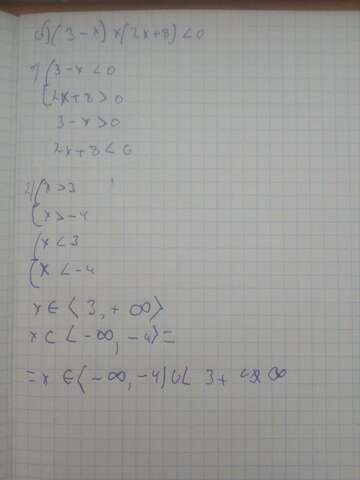 б) (3-x)×(2x+8)<0
1) { 3-x<0
{ 2x+8>0
3-x>0
2x+8<0
2) { x>3
{ x>-4
{ x<3
{ x<-4
x ∈ ⟨3, +∞⟩
x ⊂ ⟨-∞, -4⟩=
= x ∈ (-∞, -4) ∪ ⟨ 3+ ∞